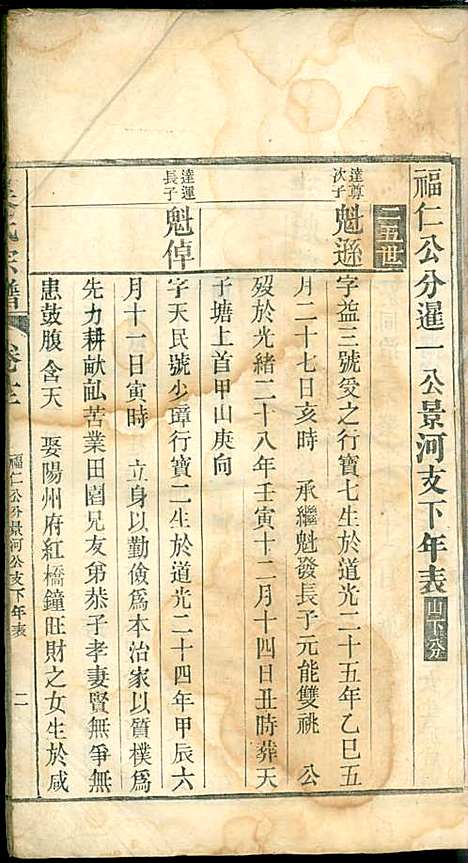 福仁公分暹一公景河支下年表 山下分
二五世
達尊次子
魁遜
字益三號爰之行寶七生於道光二十五年乙巳五
月二十七日亥時 承繼魁發長子元能雙祧 公
歿於光緒二十八年壬寅十二月十四日丑時葬天
子塘上首甲山庚向
達運長子
魁倬
字天民號少璋行寶二生於道光二十四年甲辰六
月十一日寅時 立身以勤儉爲本治家以質樸爲
先力耕畎畝苦業田園兄友弟恭子孝妻賢無爭無
患鼓腹含天 娶陽州府紅橋鐘旺財之女生於咸
氏宗譜 卷十三 福仁公分景河公支下年表 二